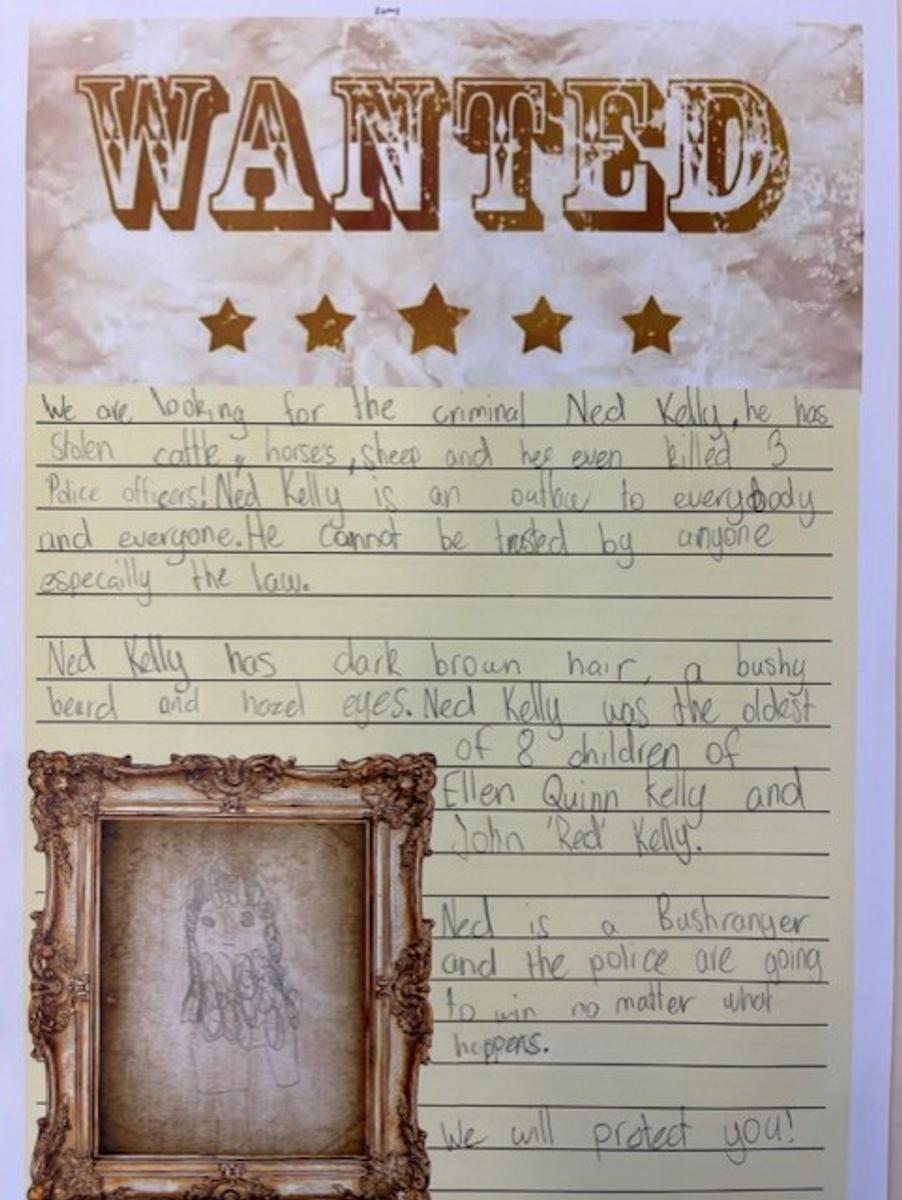 WANTED
We are looking for the criminal Ned Kelly, he has
Stolen cattle, horses, sheep and hes even killed 3
Police officers! Ned Kelly is an outlaw to everybody
and everyone. He cannot be trusted by anyone
especailly the law.
Ned Kelly has dark brown hair, a bushy
beard and hazel eyes. Ned Kelly was the oldest
of 8 children of
Ellen Quinn Kelly and
John 'Red' Kelly.
Ned is a Bushranger
and the police are going
to win no matter what
happens.
We will protect you!